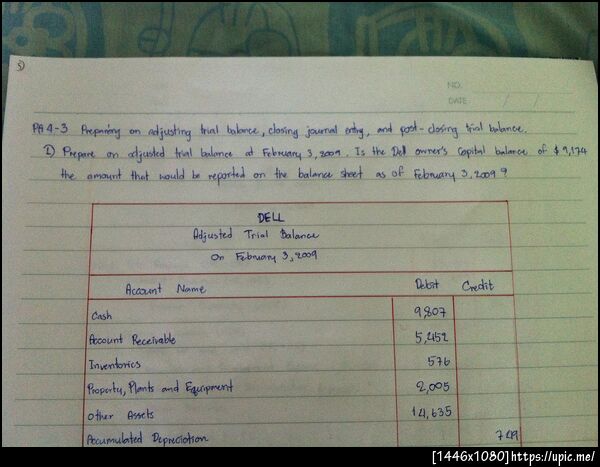 5)
NO.
DATE / /
PA4-3 Preparing an adjusting trial balance, closing journal entry, and post-closing trial balance.
1) Prepare an adjusted trial balance at February 3, 2009. Is the Dell owner's capital balance of $ 9,174
the amount that would be reported on the balance sheet as of February 3, 2009 ?
DELL
Adjusted Trial Balance
On February 3, 2009
Account Name Debit Credit
Cash 9,807
Account Receivable 5,452
Inventories 576
Property, Plants and Equipment 2,005
Other Assets 14,635
Accumulated Depreciation 749
[1446x1080]https://upic.me/